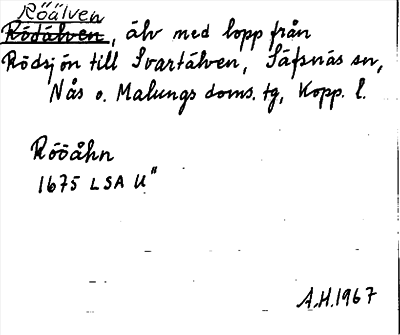 Röälven
Rödälven, älv med lopp från
Rödsjön till Svartälven, Säfsnäs sn,
Nås o. Malungs doms. tg, Kopp. l.
Rööåhn
1675 LSA U"
A.H.1967